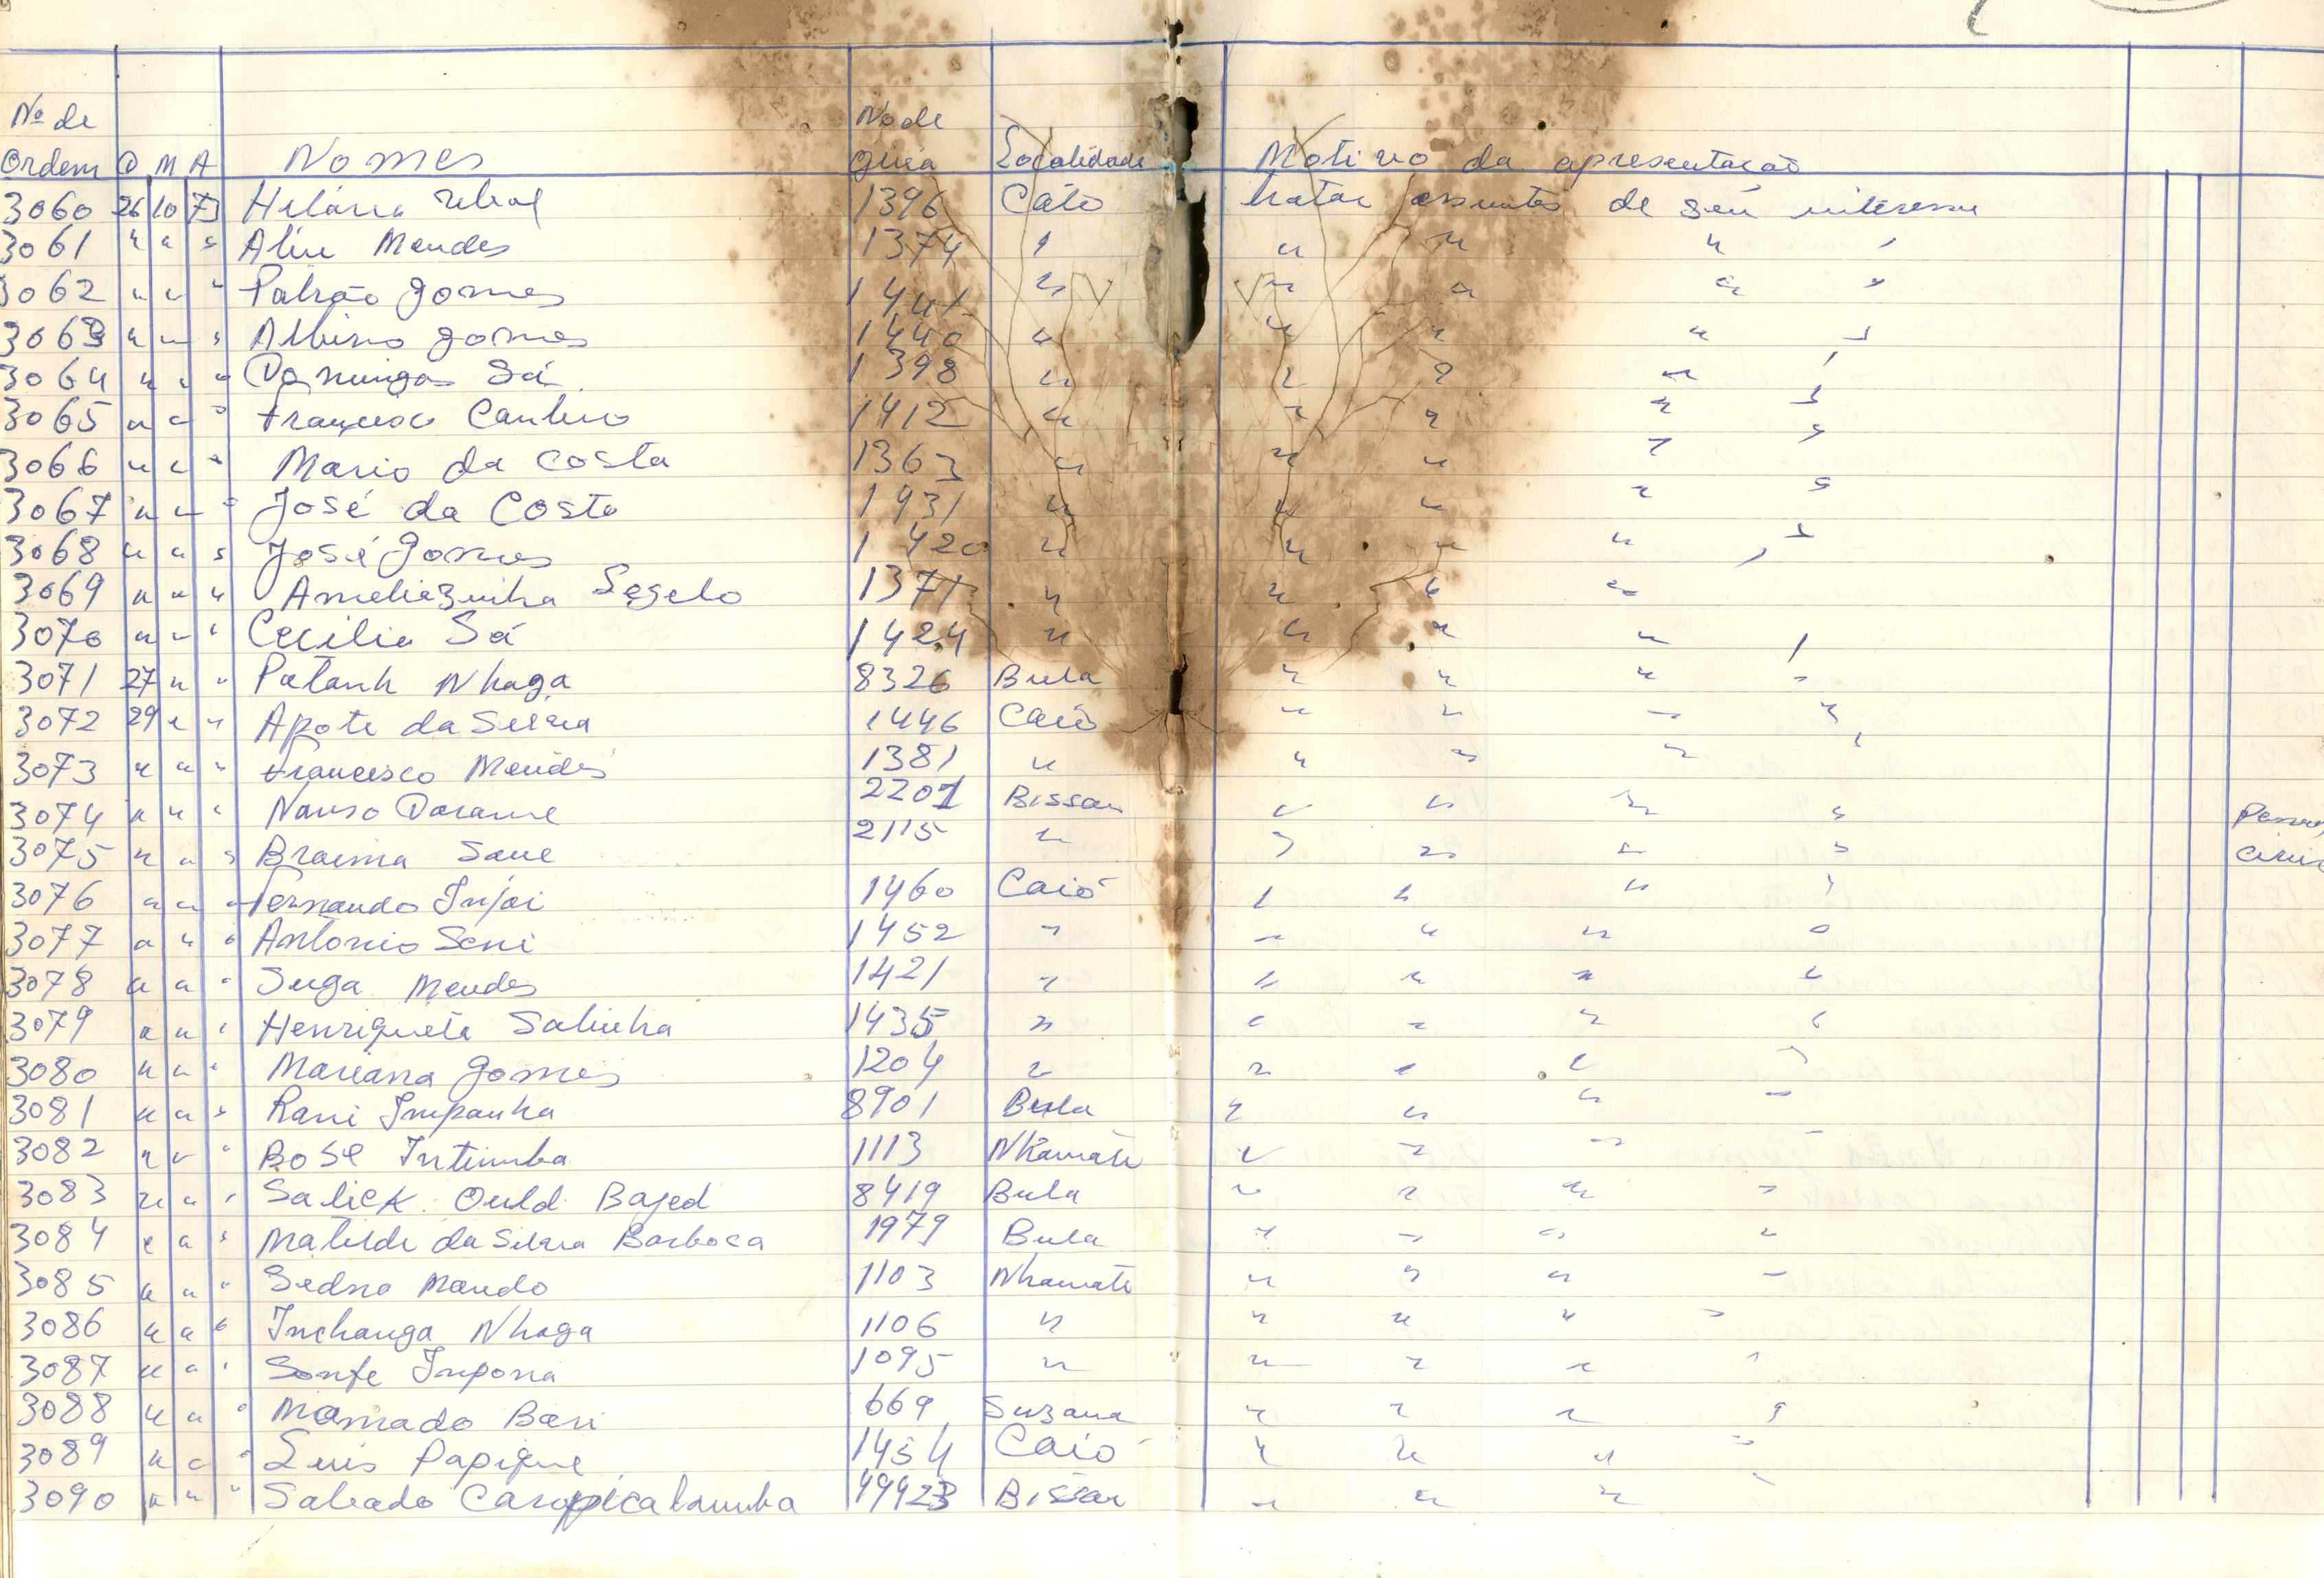 Nº de Ordem D M A Nomes Nº de guia Localidade Motivo da apresentação
3060 26 10 73 Hilária 1396 Caió tratar assuntos de seu interesse
3061 " " " Aliu Mendes 1374 " " " " "
3062 " " " Patrão Gomes 1441 " " " " "
3063 " " " Albino Gomes 1440 " " " " "
3064 " " " Domingas Sá 1398 " " " " "
3065 " " " Francisco Cantino 1412 " " " " "
3066 " " " Mario da Costa 1363 " " " " "
3067 " " " José da Costa 1931 " " " " "
3068 " " " José Gomes 1420 " " " " "
3069 " " " Ameliazinha Segelo 1371 " " " "
3070 " " " Cecilia Sá 1424 " " " " "
3071 27 " " Patanh Nhaga 8326 Bula " " " "
3072 29 " " Apote da Silva 1446 Caió " " " "
3073 " " " Francisco Mendes 1381 " " " " "
3074 " " " Nanso Darame 2201 Bissau " " " "
3075 " " " Braima Sane 2115 " " " " "
3076 " " " Fernando Injai 1460 Caió " " " "
3077 " " " Antonio Seni 1452 " " " " "
3078 " " " Suga Mendes 1421 " " " " "
3079 " " " Henriqueta Salinha 1435 " " " " "
3080 " " " Mariana Gomes 1204 " " " " "
3081 " " " Rani Impanha 8901 Bula " " " "
3082 " " " Bose Intumba 1113 Nhamate " " " "
3083 " " " Salick Ould Bajed 8419 Bula " " " "
3084 " " " Matilde da Silva Barbosa 1979 Bula " " " "
3085 " " " Sidna Mando 1103 Nhamate " " " "
3086 " " " Inchanga Nhaga 1106 " " " " "
3087 " " " Sonfe Impona 1095 " " " " "
3088 " " " Mamado Bari 669 Suzana " " " "
3089 " " " Luis Papique 1454 Caió " " " "
3090 " " " Sabado 49423 Bissau " " "